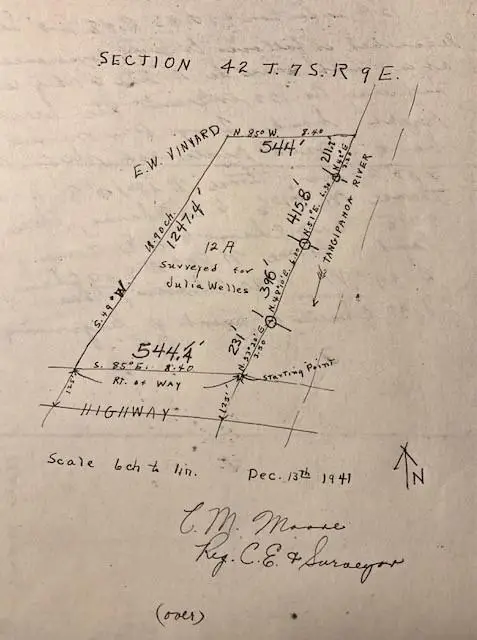 SECTION 42 T. 7 S. R 9 E.
E.W. VINYARD
N 85° W. 8.40
544'
211.2'
N. 42° E
415.8'
N. 51° E. 6.30
TANGIPAHOA RIVER
18.90 ch.
1247.4'
S. 49° W.
12 A
surveyed for
Julia Welles
396'
231'
3.50
544.4'
S. 85° E. 8.40
Starting Point
Rt. of WAY
125'
125'
HIGHWAY
Scale 6 ch to 1 in. Dec. 13th 1941
N
C. M. Moore
Reg. C.E. & Surveyor
(over)